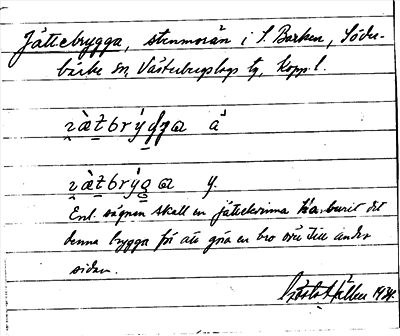 Jättebrygga, stenmorän i S. Barken, Söder-
bärke sn, Västerbergslags tg, Kopp. l.
å
y.
Enl. sägnen skall en jättekvinna ha burit dit
denna brygga för att göra en bro över till andra
sidan.
Gösta Hallen 1934.